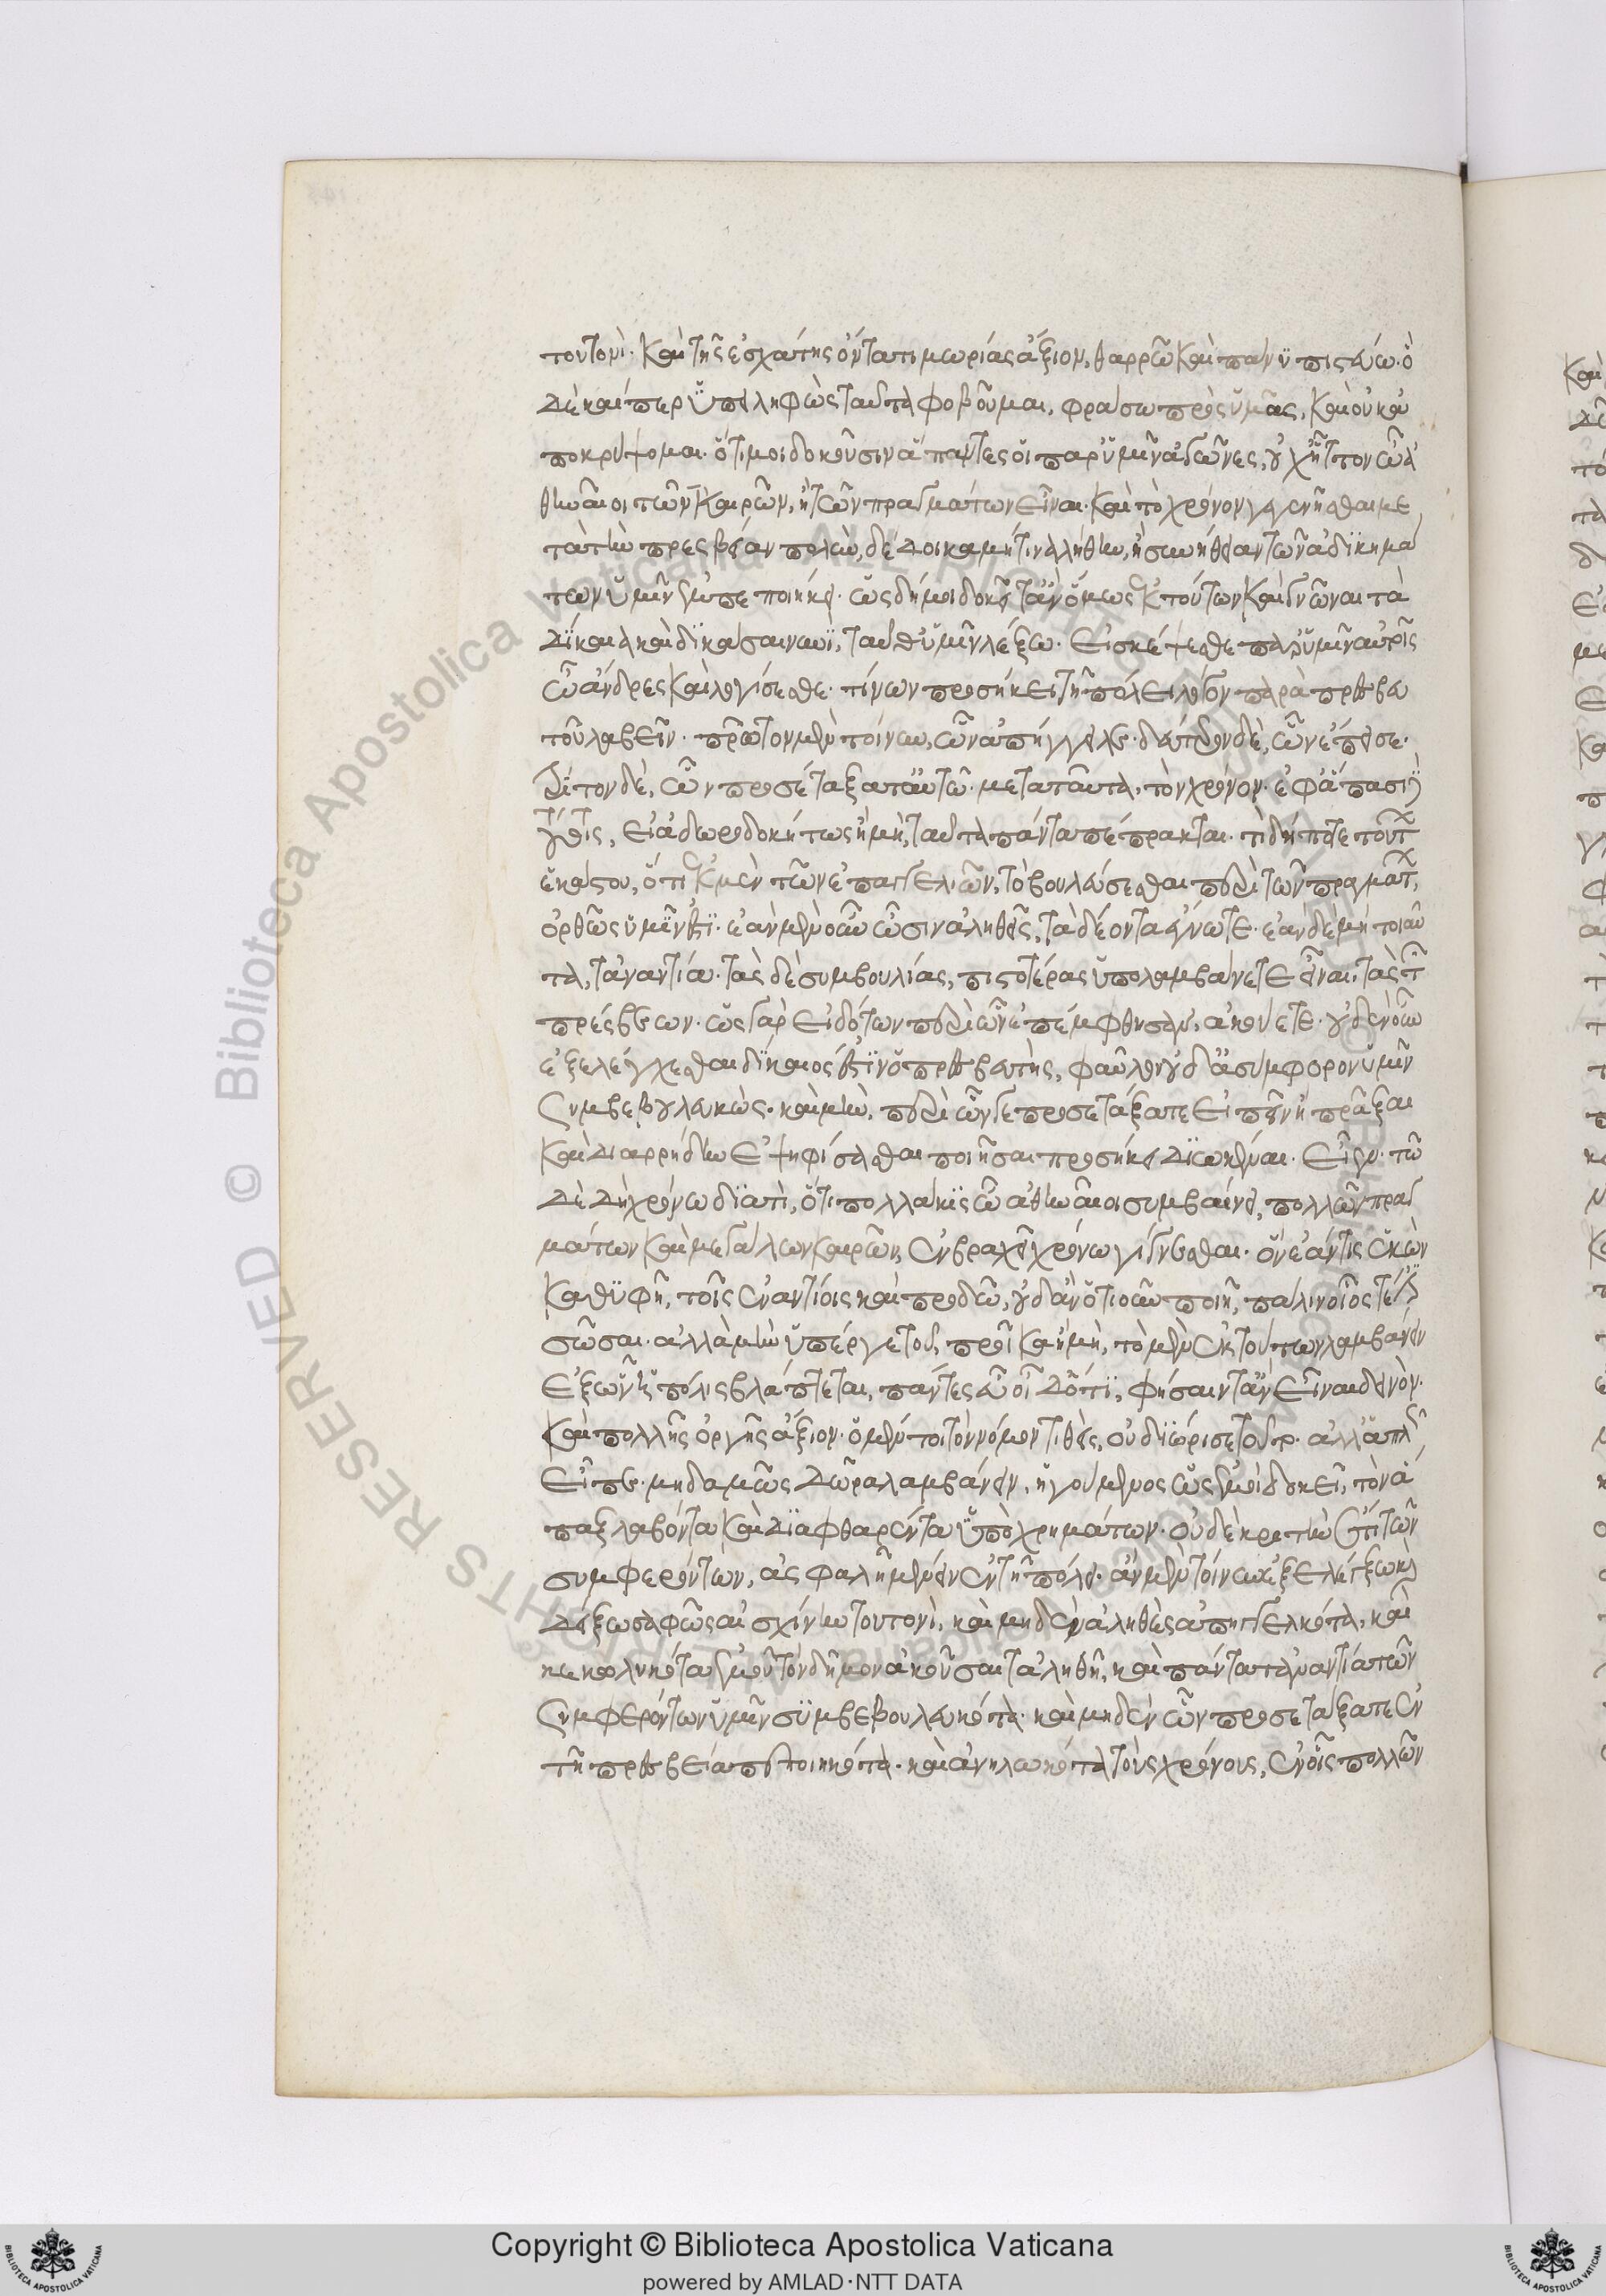 τουτονὶ· καὶ τῆς ἐσχάτης ὄντα τιμωρίας ἄξιον, θαρρῶ καὶ πάνυ πιστεύω· ὃ
δὲ καίπερ ὑπειληφὼς ταῦτα φοβοῦμαι, φράσω πρὸς ὑμᾶς, καὶ οὐκ ἀ
ποκρύψομαι· ὅτι μοι δοκοῦσιν ἅπαντες οἱ παρ' ὑμῖν ἀγῶνες, οὐχ ἧττον ὦ ἀ
θηναῖοι τῶν καιρῶν, ἢ τῶν πραγμάτων εἶναι· καὶ τὸ χρόνον γεγενῆσθαι με
τὰ τὴν πρεσβείαν πολὺν, δέδοικα μή τινα λήθην, ἢ συνήθειαν τῶν ἀδικημά
των ὑμῖν ἐμπεποιήκει· ὡς δή μοι δοκεῖτ' ἂν ὅμως ἐκ τούτων καὶ γνῶναι τὰ
δίκαια καὶ δικάσαι νυνὶ, ταῦθ' ὑμῖν λέξω· εἰ σκέψεσθε παρ' ὑμῖν αὐτοῖς
ὦ ἄνδρες καὶ λογίσεσθε· τίνων προσήκει τῇ πόλει λόγον παρὰ πρεσβευ
τοῦ λαβεῖν· πρῶτον μὲν τοίνυν, ὧν ἀπήγγειλε· δεύτερον δὲ, ὧν ἔπεισε·
τρίτον δὲ, ὧν προσετάξατ' αὐτῷ· μετὰ ταῦτα, τὸν χρόνον· ἐφ' ἅπασι
τούτοις, εἰ ἀδωροδοκήτως ἢ μὴ, ταῦτα πάντα πέπρακται· τί δή ποτε τούτων
ἑκάστου, ὅτι ἐκ μὲν τῶν ἐπαγγελιῶν, τὸ βουλεύσεσθαι περὶ τῶν πραγμάτων,
ὀρθῶς ὑμῖν ἐστι· ἐὰν μὲν οὖν ὦσιν ἀληθεῖς, τὰ δέοντα ἔγνωτε· ἐὰν δὲ μὴ τοιαῦ
τα, τἀναντία· τὰς δὲ συμβουλίας, πιστοτέρας ὑπολαμβάνετε εἶναι, τὰς τῶν
πρέσβεων· ὡς γὰρ εἰδότων περὶ ὧν ἐπέμφθησαν, ἀκούετε· οὐδὲν οὖν
ἐξελέγχεσθαι δίκαιός ἐστιν ὁ πρεσβευτὴς, φαῦλον οὐδ' ἀσύμφορον ὑμῖν
συμβεβουλευκώς· καὶ μὴν, περὶ ὧν γε προσετάξατε εἰπεῖν ἢ πρᾶξαι
καὶ διαρρήδην ἐψηφίσασθαι ποιῆσαι προσήκει διῳκηκέναι· εἶεν· τοῦ
δὲ δὴ χρόνου διατί, ὅτι πολλάκις ὦ ἀθηναῖοι συμβαίνει, πολλῶν πραγ
μάτων καὶ μεγάλων καιρὸν, ἐν βραχεῖ χρόνῳ γίγνεσθαι· ὃν ἐάν τις ἑκὼν
καθυφῇ, τοῖς ἐναντίοις καὶ προδῷ, οὐδ' ἂν ὁτιοῦν ποιῇ, πάλιν οἷός τέ ἐστι
σῶσαι· ἀλλὰ μὴν ὑπέρ γε τοῦ, προῖκα ἢ μὴ, τὸ μὲν ἐκ τούτων λαμβάνειν
ἐξ ὧν ἡ πόλις βλάπτεται, πάντες εὖ οἶδ' ὅτι, φήσαιτ' ἂν εἶναι δεινὸν·
καὶ πολλῆς ὀργῆς ἄξιον· ὁ μέντοι τὸν νόμον τιθεὶς, οὐ διώρισε τοῦτο· ἀλλ' ἁπλῶς
εἶπε· μηδαμῶς δῶρα λαμβάνειν, ἡγούμενος ὡς ἐμοὶ δοκεῖ, τὸν ἅ
παξ λαβόντα καὶ διαφθαρέντα ὑπὸ χρημάτων· οὐδὲ κριτὴν ἔτι τῶν
συμφερόντων, ἀσφαλῆ μένειν ἐν τῇ πόλει· ἂν μὲν τοίνυν ἐξελέγξω καὶ
δείξω σαφῶς αἰσχίνην τουτονὶ, καὶ μηδὲν ἀληθὲς ἀπηγγελκότα, καὶ
κεκωλυκότα ἐμοῦ τὸν δῆμον ἀκοῦσαι τἀληθῆ, καὶ πάντα τἀναντία τῶν
συμφερόντων ὑμῖν συμβεβουλευκότα· καὶ μηδὲν ὧν προσετάξατε ἐν
τῇ πρεσβείᾳ πεποιηκότα· καὶ ἀνηλωκότα τοὺς χρόνους, ἐν οἷς πολλῶν
© Biblioteca Apostolica Vaticana ALL RIGHTS RESERVED
Copyright © Biblioteca Apostolica Vaticana
powered by AMLAD·NTT DATA